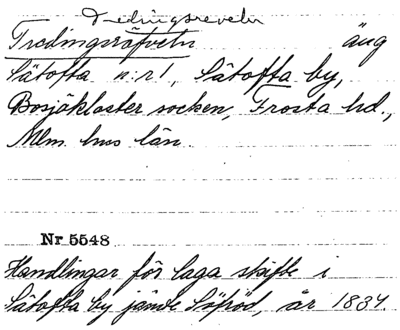 Tredingsreveln
Tredingsräfveln äng
Sätofta n:r 1, Sätofta by,
Bosjökloster socken, Frosta hd.,
Mlm hus län
Nr 5548
Handlingar för laga skifte i
Sätofta by jämte Löfröd, år 1834.